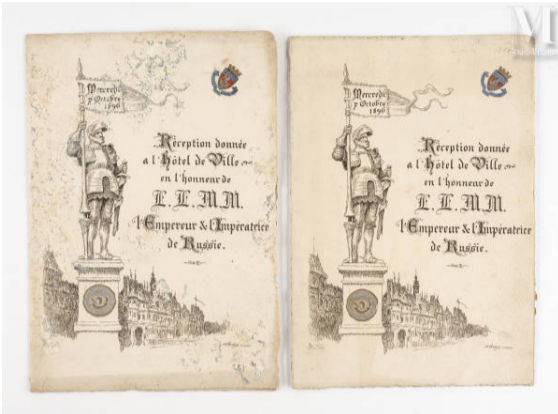 Mercredi
7 Octobre
1896
Réception donnée
a l'Hôtel de Ville
en l'honneur de
L.L.M.M.
l'Empereur & l'Impératrice
de Russie.
Mercredi
7 Octobre
1896
Réception donnée
a l'Hôtel de Ville
en l'honneur de
L.L.M.M.
l'Empereur & l'Impératrice
de Russie.